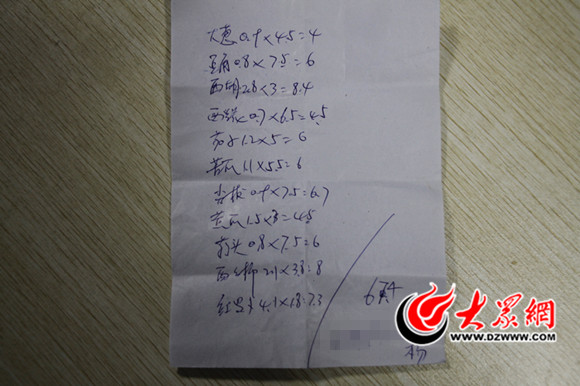 大葱0.9×4.5=4
0.8×7.5=6
西胡2.8×3=8.4
西 0.7×6.5=4.5
茄子1.2×5=6
苦瓜1.1×5.5=6
尖椒0.9×7.5=6.7
黄瓜1.5×3=4.5
0.8×7.5=6
西红柿2.1×3.8=8
4.1×1.8=7.3
6
杨
大众網
WWW.DZWWW.COM